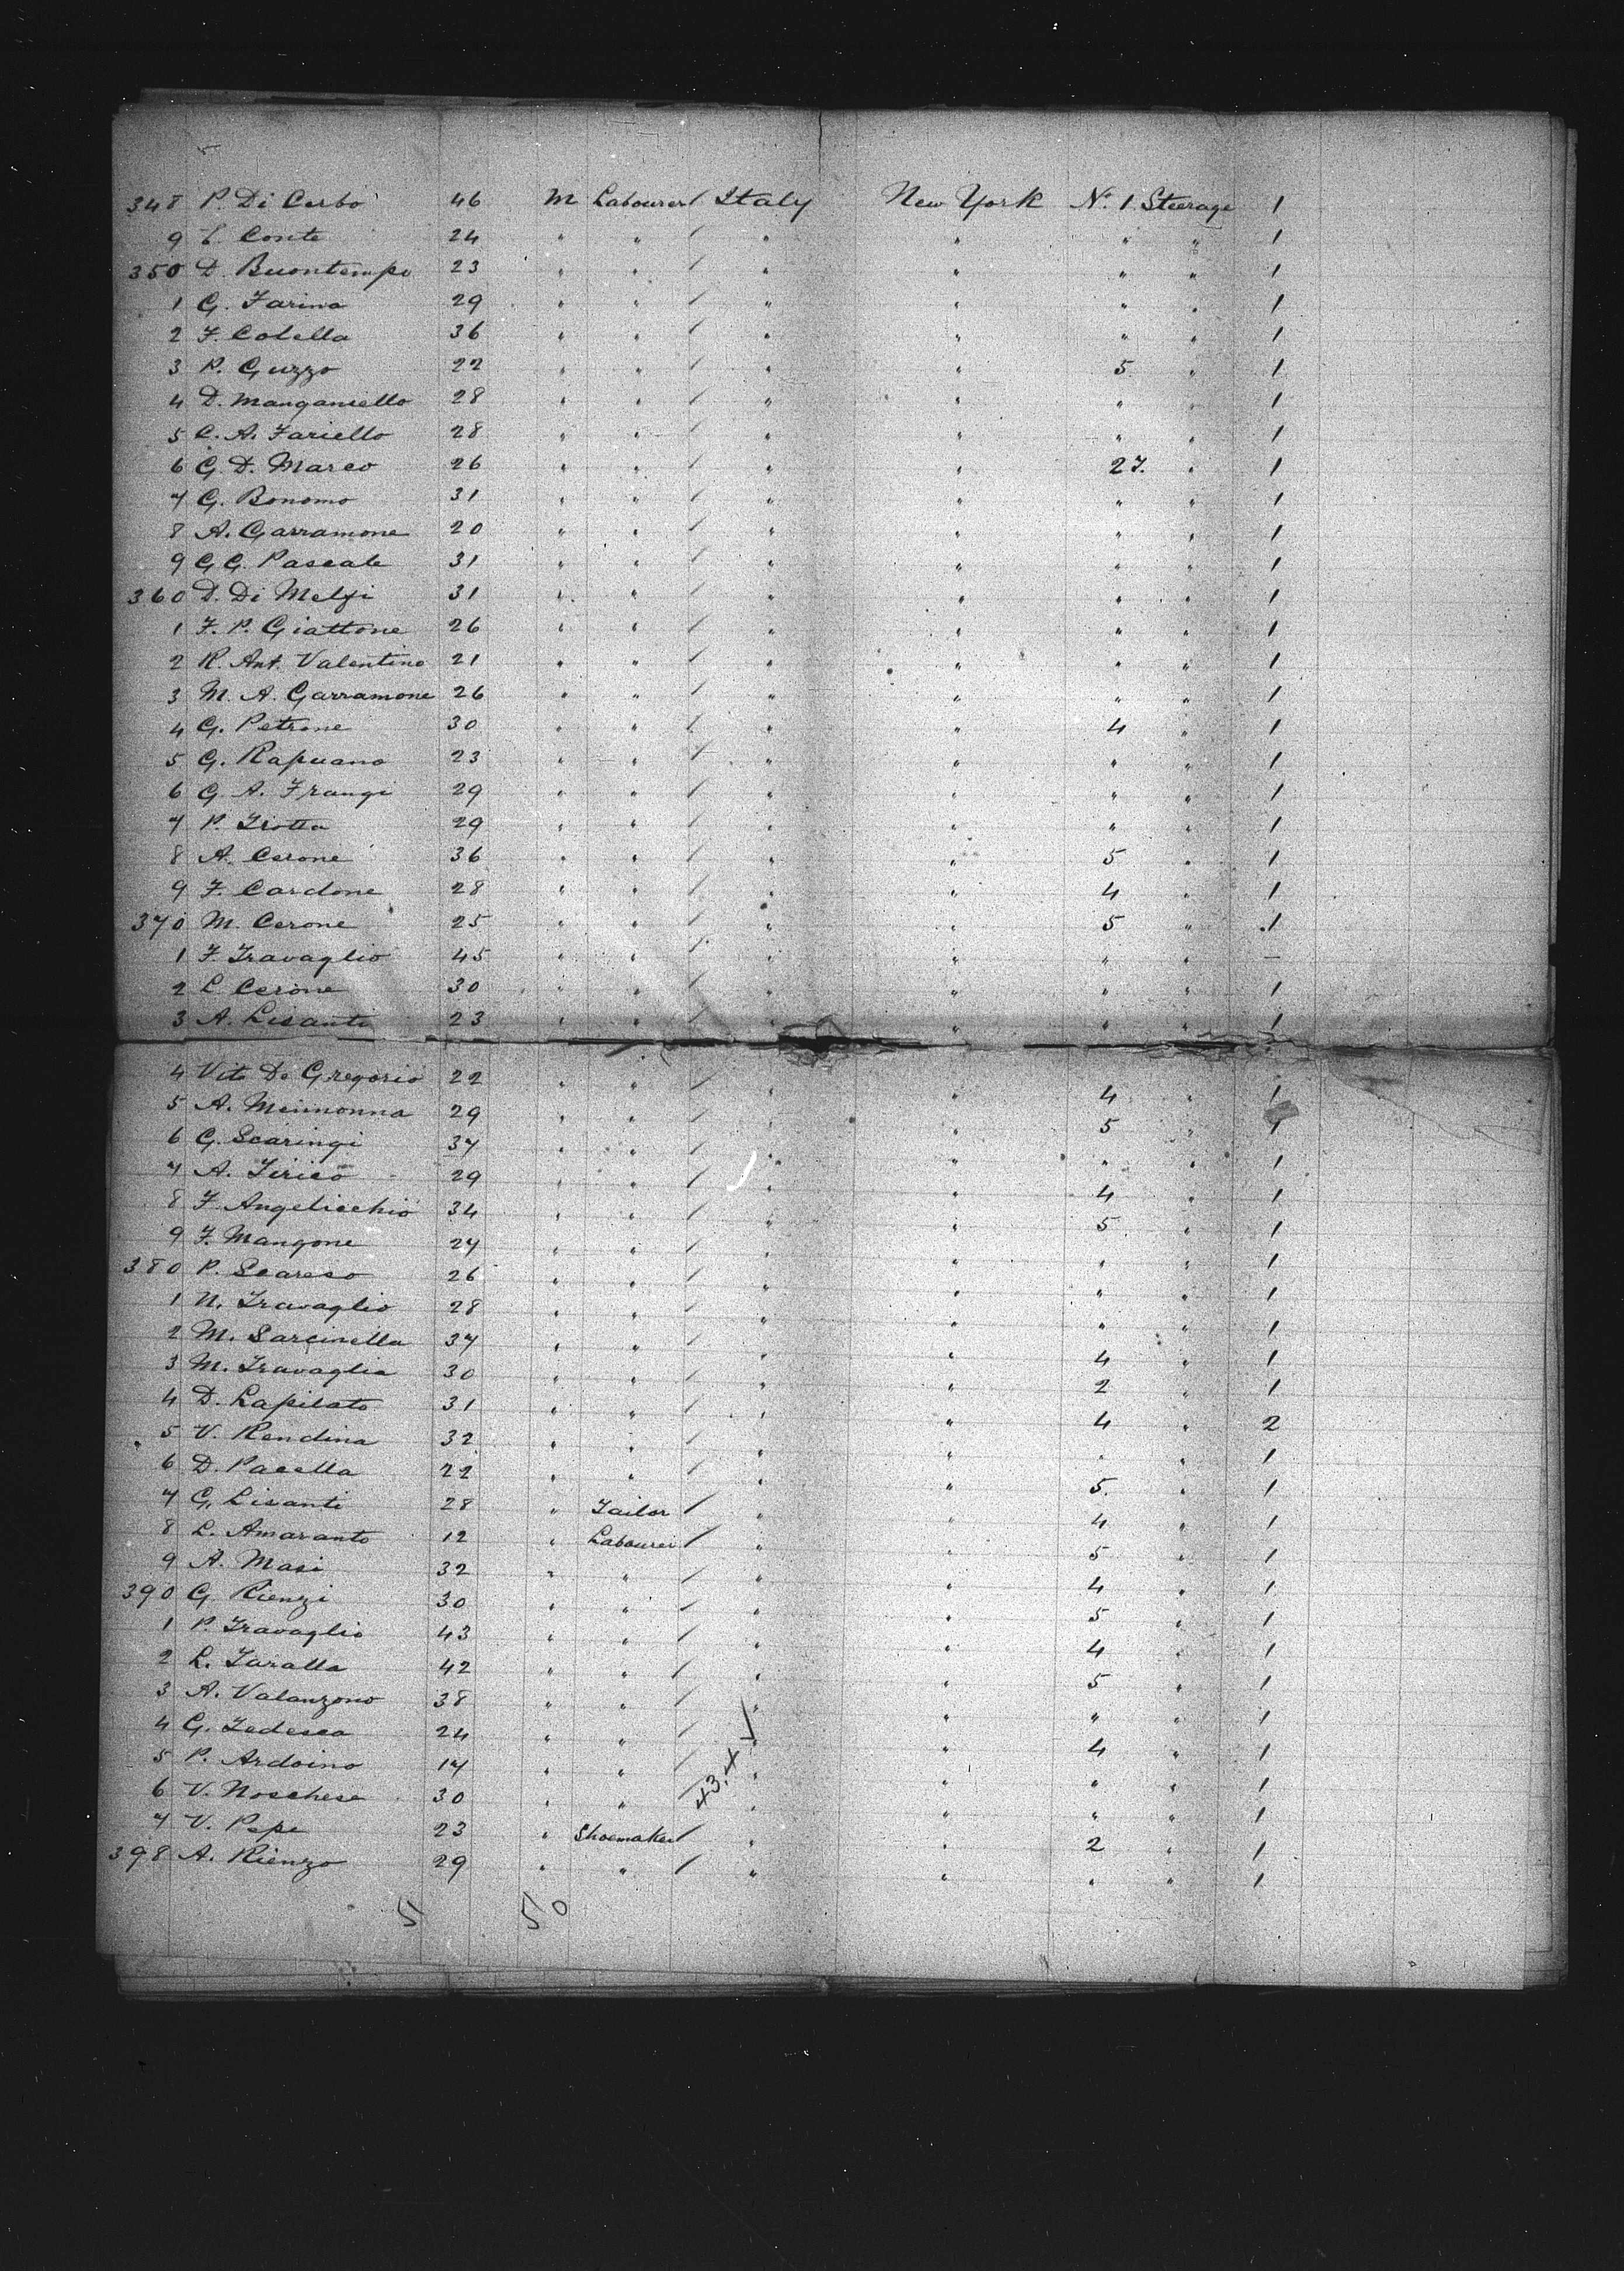 348 P. Di Cerbo 46 M Labourer / Italy New York N. 1 Steerage 1
9 C. Conte 24 " " / " " " " 1
350 D. Buontempo 23 " " / " " " " 1
1 G. Farina 29 " " / " " " " 1
2 F. Colella 36 " " / " " " " 1
3 P. Guzzo 22 " " / " " 5 " 1
4 D. Manganiello 28 " " / " " " " 1
5 C. A. Fariello 28 " " / " " " " 1
6 G. D. Marco 26 " " / " " 27. " 1
7 G. Bonomo 31 " " / " " " " 1
8 A. Garramone 20 " " / " " " " 1
9 G. G. Pascale 31 " " / " " " " 1
360 D. Di Melfi 31 " " / " " " " 1
1 F. P. Giattone 26 " " / " " " " 1
2 R. Ant. Valentino 21 " " / " " " " 1
3 M. A. Garramone 26 " " / " " " " 1
4 G. Petrone 30 " " / " " 4 " 1
5 G. Rapuano 23 " " / " " " " 1
6 G. A. Frangi 29 " " / " " " " 1
7 P. Trotta 29 " " / " " " " 1
8 A. Cerone 36 " " / " " 5 " 1
9 F. Cardone 28 " " / " " 4 " 1
370 M. Cerone 25 " " / " " 5 " 1
1 F. Travaglio 45 " " / " " " " —
2 L. Cerone 30 " " / " " " " 1
3 A. Lisanti 23 " " / " " " " 1
4 Vito De Gregorio 22 " " / " " 4 " 1
5 A. Meimonna 29 " " / " " 5 " 1
6 G. Scaringi 37 " " / " " " " 1
7 A. Tirico 29 " " / " " 4 " 1
8 F. Angelicchio 34 " " / " " 5 " 1
9 F. Mangone 27 " " / " " " " 1
380 P. Scareso 26 " " / " " " " 1
1 N. Travaglio 28 " " / " " " " 1
2 M. Sarcinella 37 " " / " " 4 " 1
3 M. Travaglia 30 " " / " " 2 " 1
4 D. Lapilato 31 " " / " " 4 " 2
5 V. Rendina 32 " " / " " " " 1
6 D. Pacella 22 " " / " " 5. " 1
7 G. Lisanti 28 " Tailor / " " 4 " 1
8 L. Amaranto 12 " Labourer / " " 5 " 1
9 A. Masi 32 " " / " " 4 " 1
390 G. Rienzi 30 " " / " " 5 " 1
1 P. Travaglio 43 " " / " " 4 " 1
2 L. Taralla 42 " " / " " 5 " 1
3 A. Valanzono 38 " " / " " " " 1
4 G. Tedesca 24 " " / " " 4 " 1
5 P. Ardoino 17 " " / " " " " 1
6 V. Noschese 30 " " / " " " " 1
7 V. Pepe 23 " Shoemaker / " " 2 " 1
398 A. Rienzo 29 " " / " " " " 1
5 50